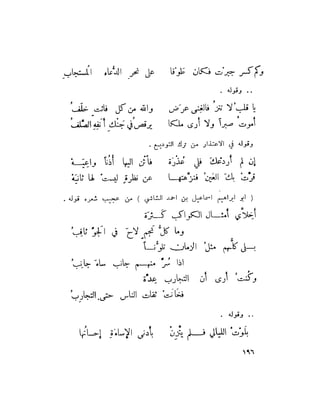 وكم كسر جبرت فكان طوقا على نحر الدعاء المستجاب
.. وقوله .
يا قلب لا تترُ فالغنى عرض والله من كل فائت خلف
أموت صبراً ولا أرى ملكا يرقص في جنك أنفه الصلف
وقوله في الاعتذار من ترك التوديع .
إن لم أردعك فلي عذرة فأثن اليها أذُناً واعيه
قرّت بك العين فنزهتها عن نظرة ليست لها ثانيه
( ابو ابراهيم اسماعيل بن احمد الشاشي ) من عجيب شعره قوله .
أخلاّي أمثال الكواكب كثرة وما كلّ نجم لاح في الجوّ ثاقب
بلى كلّهم مثل الزمان تلونا اذا سرّ منهم جانب ساء جانب
وكنت أرى أن التجارب عدة فخانت ثقات الناس حتى التجارب
.. وقوله .
بلوت الليالي فلم يتّزن بأدنى الإساءة إحسانها
١٩٦